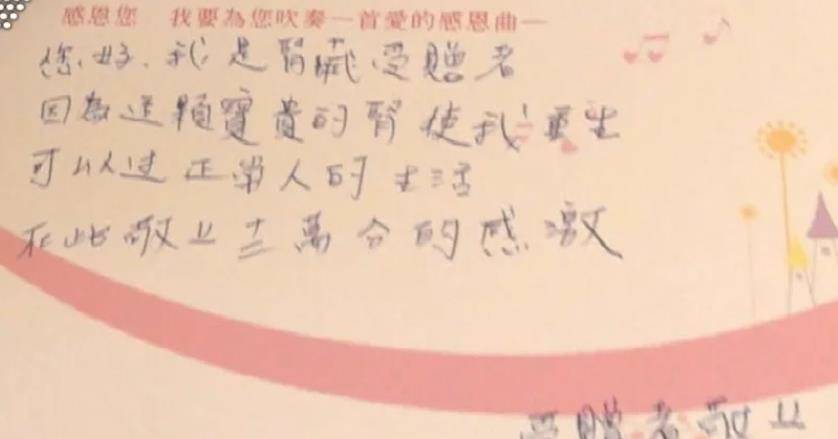 感恩您 我要為您吹奏一首愛的感恩曲
您好，我是腎臟受贈者
因為這顆寶貴的腎使我重生
可以过正常人的生活
在此敬上十二萬分的感激
受贈者敬上